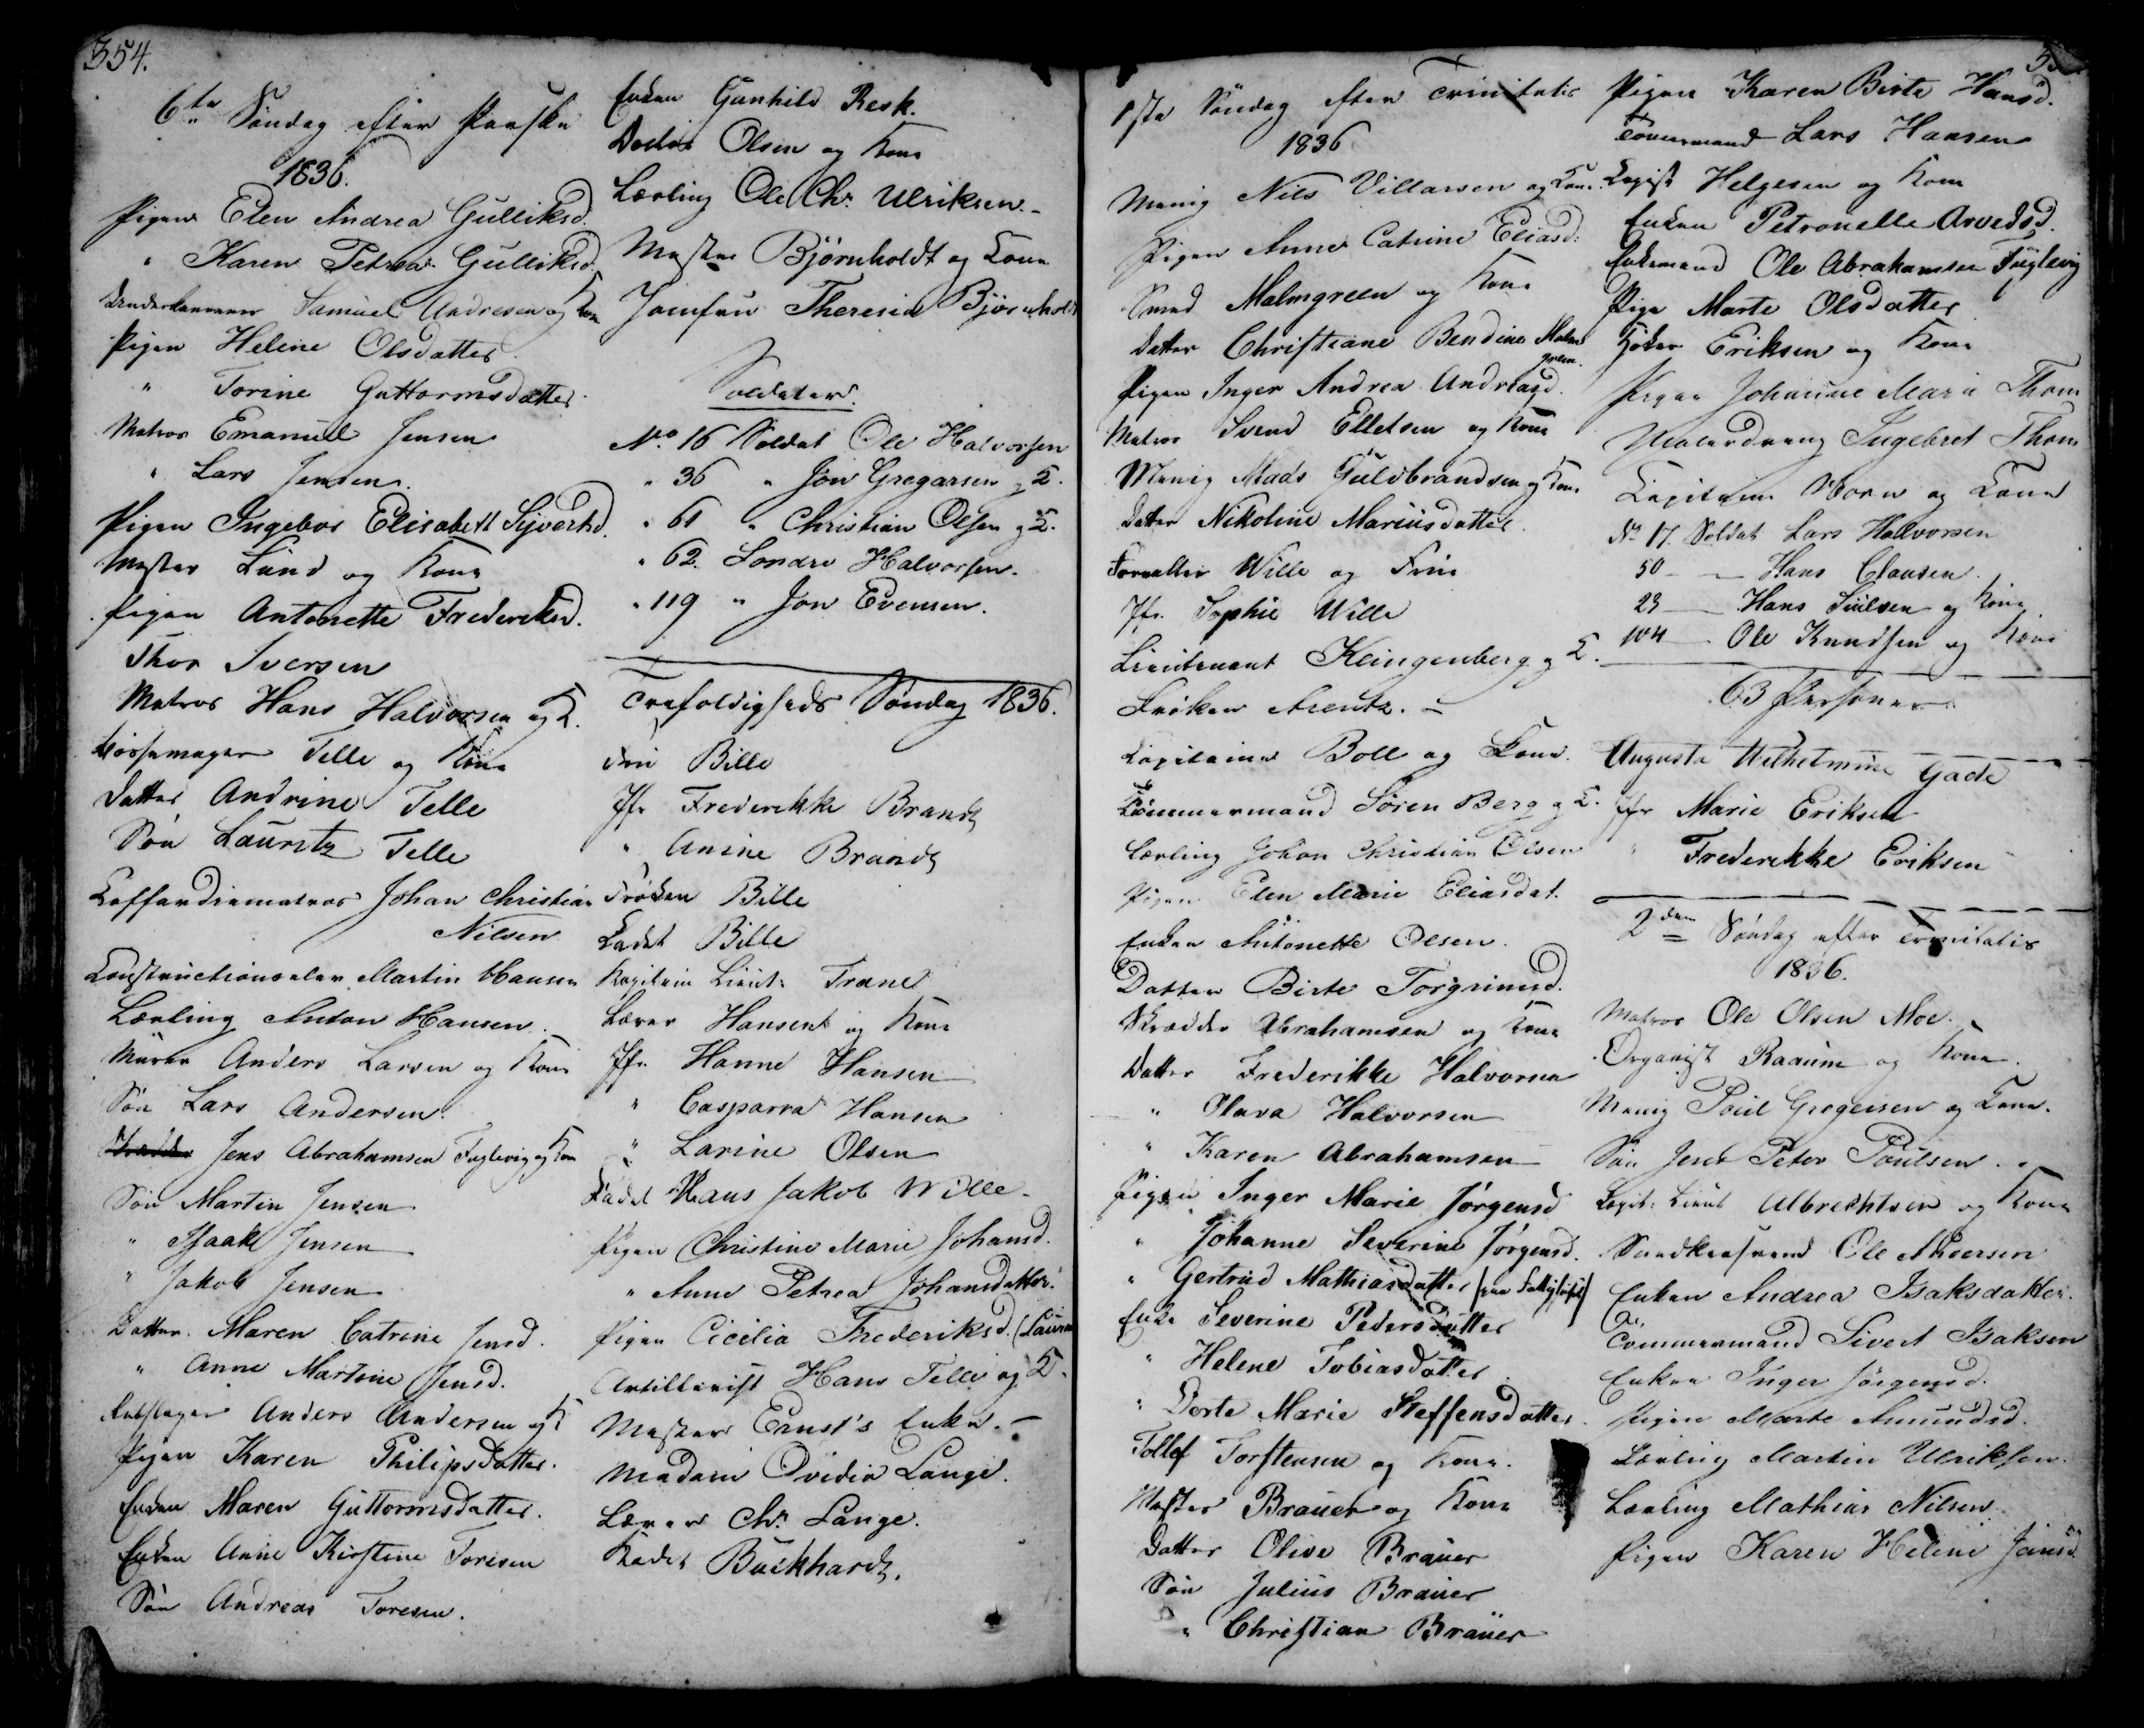 354.
6te Søndag efter Paaske
1836.
Pigen Elen Andrea Gulliksd.
" Karen Petrea Gulliksd.
Underkanoneer Samuel Andresen og Kone
Pigen Helene Olsdatter
" Torine Guttormsdatter.
Matros Emanuel Jensen
" Lars Jensen.
Pigen Ingebor Elisabeth Sÿverhd.
Mester Lund og Kone
Pigen Antonette Frederiksd.
Thor Iversen
Matros Hans Halvorsen og K.
Bøssemager Telle og Kone
Datter Andrine Telle
Søn Lauritz Telle
Coffardiematros Johan Christian
Nilsen
Constructionselev Martin Hansen
Lærling Anton Hansen.
Murer Anders Larsen og Kone
Søn Lars Andersen.
Jens Abrahamsen Fuglevig og Kone
Søn Martin Jensen
" Isaak Jensen
" Jakob Jensen
Datter Maren Catrine Jensd.
" Anne Martine Jensd.
Rebslager Anders Andersen og K
Pigen Karen Philipsdatter.
Enken Maren Guttormsdatter.
Enken Anne Kirstine Toresen
Søn Andreas Toresen.
Enken Gunhild Resk.
Olsen og Kone
Lærling Ole Chr. Ulriksen.-
Mester Bjørnholdt og Kone
Jomfru Theresia Bjørnholdt
Soldater.
No. 16 Soldat Ole Halvorsen
" 36 " Jon Gregarsen og K.
" 61 " Christian Olsen og K.
" 62. Sondre Halvorsen.
" 119 " Jon Evensen.
Trefoldigheds Søndag 1836.
Fru Bille
Jfr Frederikke Brandt
" Anine Brandt
Frøken Bille
Kadet Bille
Kapitain Lieut: Trane
Lærer Hansen og Kone
Jfr. Hanne Hansen
" Casparra Hansen
" Larine Olsen
Kadet Hans Jakob Wille-
Pigen Christine Marie Johansd.
" Anne Petrea Johansdatter.
Pigen Cicilia Frederiksd.
Artillerist Hans Telle og K.
Mester Ernst's Enke.-
Madam Ovidia Lange.
Lærer Chr. Lange.
Kadet Burkhardt.
1ste Søndag efter Trinitatis
1836
Menig Nils Villarsen og Kone.
Pigen Anne Catrine Eliasd.
Smed Malmgreen og Kone
Datter Christiane Bendine Malm
green.
Pigen Inger Andrea Andreasd.
Matros Svend Elletsen og Kone
Menig Mads Guldbrandsen og Kone
Datter Nikoline Mariusdatter.
Forvalter Wille og Frue
Jfr. Sophie Wille
Lieutenant Klingenberg og K.
Frøken Arentz.-
Kapitaine Boll og Kone.
Tømmermand Søren Berg og K.
Lærling Johan Christian Olsen
Pigen Elen Marie Eliasdat.
Enken Antonette Olsen.
Datter Birte Torgrimsd.
Skrædder Abrahamsen og Kone
Datter Frederikke Halvorsen
" Olava Halvorsen
" Karen Abrahamsen
Pigen Inger Marie Jørgensd
" Johanne Severine Jørgensd.
" Gertrud Mathiasdatter
Enke Severine Pedersdatter
" Helene Tobiasdatter
" Dorte Marie Steffensdatter.
Tollef Torstensen og Kone.
Mester Brauer og Kone
Datter Olive Brauer
Søn Julius Brauer
" Christian Brauer
Pigen Karen Birte Hansd.
Tømmermand Lars Hansen
Helgesen og Kone
Enken Petronelle Arvedsd.
Enkemand Ole Abrahamsen Fuglevig
Pige Marte Olsdatter
Høker Eriksen og Kone
Pigen Johanne Marie Thom
Ingebret Thom
Kapitain Horn og Kone
No 17. Soldat Lars Halvorsen
50 - - Hans Clausen.
23 - Hans Nielsen og Kone
104 - Ole Knudsen og Kone
63 Personer
Augusta Wilhelmine Gade
Jfr Marie Eriksen
" Frederikke Eriksen
2den Søndag efter Trinitatis
1836.
Matros Ole Olsen Moe.
Organist Raaum og Kone.
Menig Poul Gregersen og Kone.
Søn Jens Peter Poulsen.
Kapt: Lieut Albrechtsen og Kone
Ole Andersen
Enken Andrea Isaksdatter.
Tømmermand Sivert Isaksen
Enken Inger Jørgensd.
Pigen Marte Amundsd.
Lærling Martin Ulriksen.
Lærling Mathias Nilsen.
Pigen Karen Heline Jensd